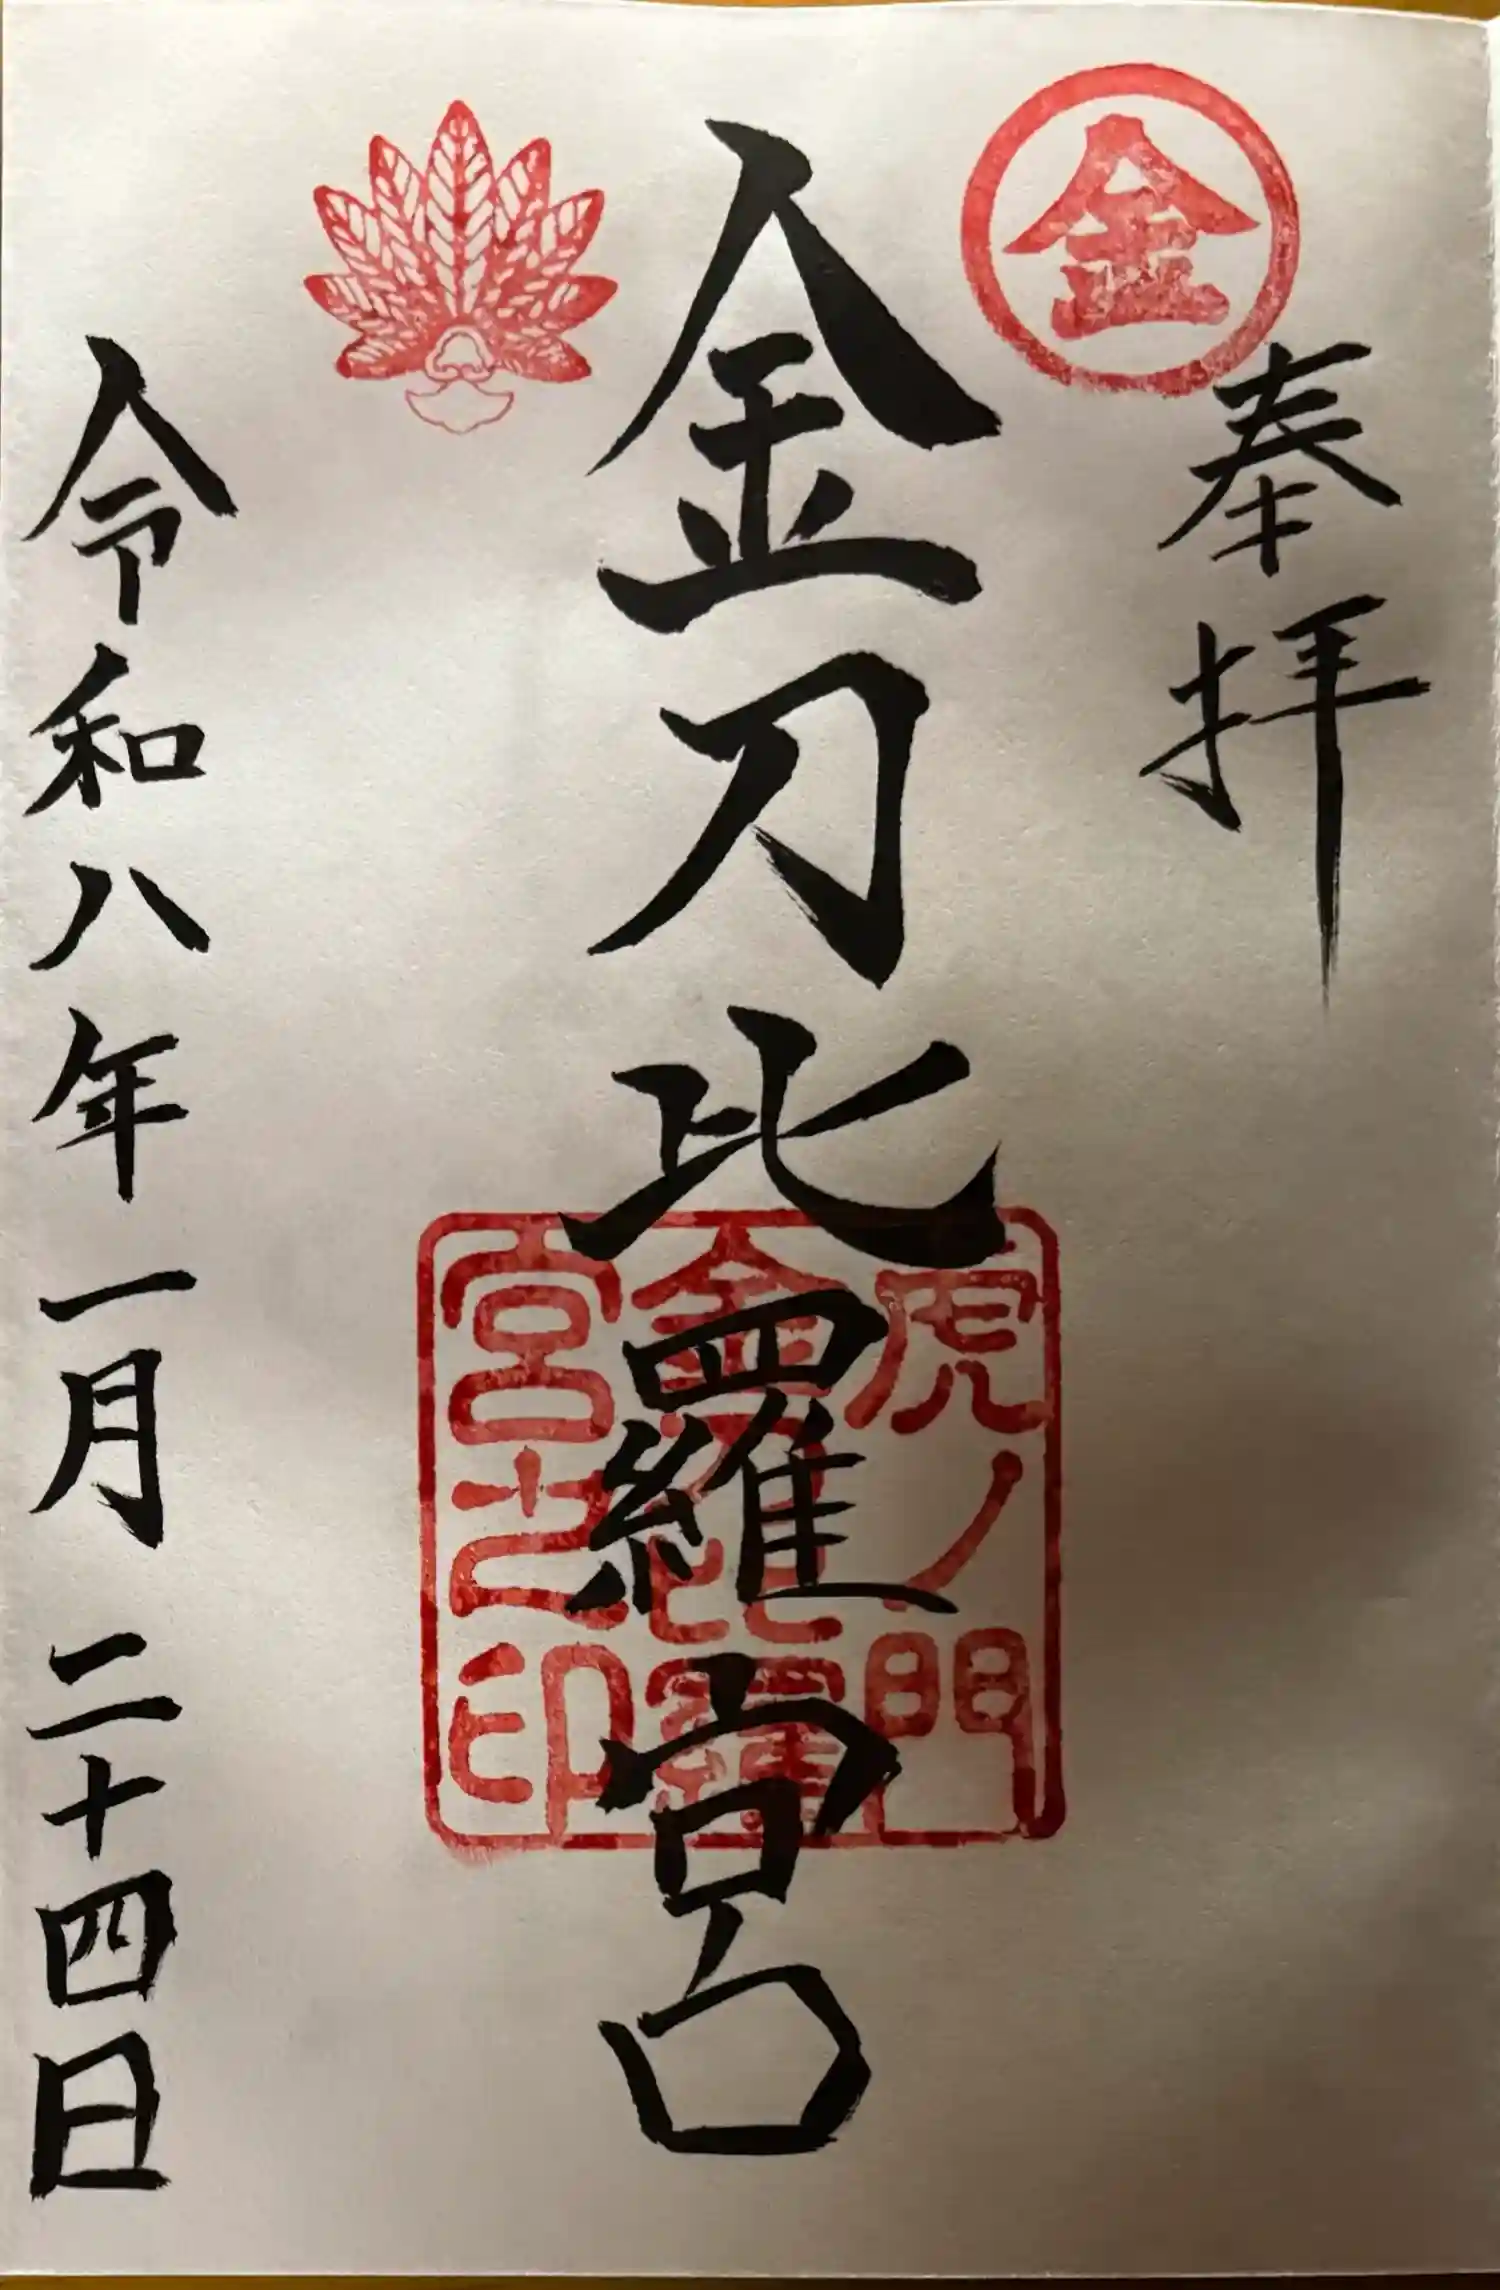 奉拝
金
金刀比羅宮
虎ノ門
金刀比羅
宮之印
令和八年一月二十四日